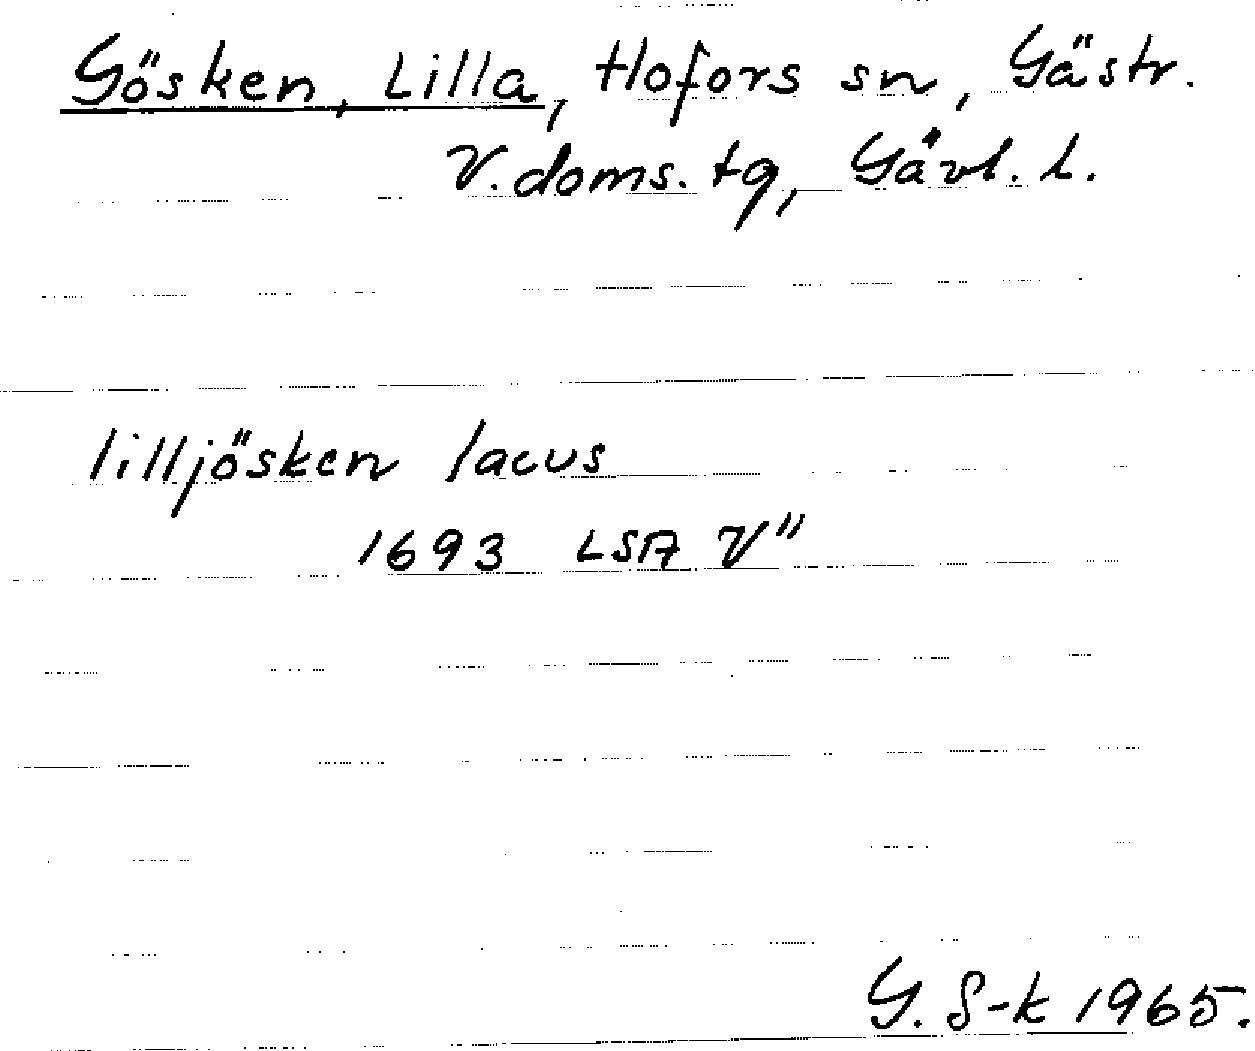 Gösken, Lilla, Hofors sn, Gästr.
V. doms. tg, Gävl. l.
lilljösken lacus
1693 LSA V"
G. S-k 1965.